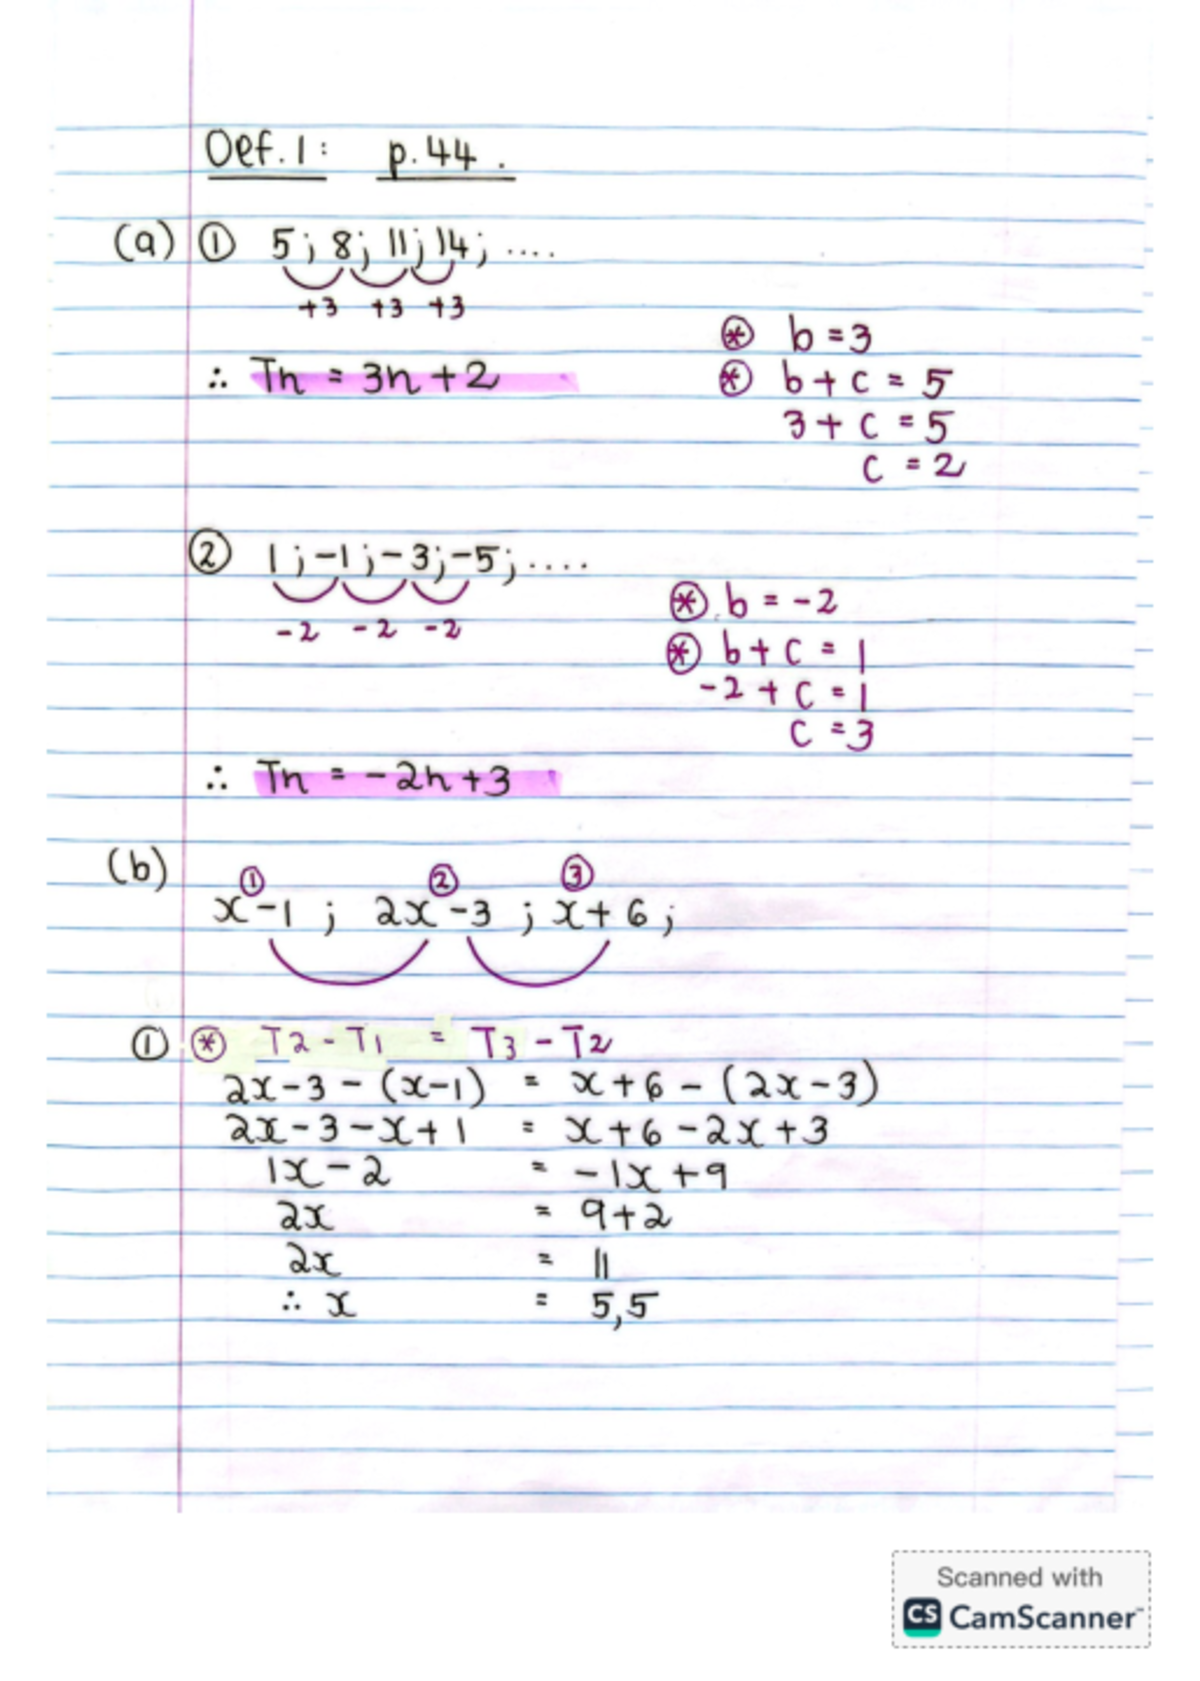 Oef. 1: p. 44.
(a) ① 5 ; 8 ; 11 ; 14 ; ....
+3 +3 +3
⊛ b = 3
∴ Tn = 3n + 2
⊛ b + c = 5
3 + c = 5
c = 2
② 1 ; -1 ; -3 ; -5 ; ....
-2 -2 -2
⊛ b = -2
⊛ b + c = 1
-2 + c = 1
c = 3
∴ Tn = -2n + 3
(b)
① ② ③
x - 1 ; 2x - 3 ; x + 6 ;
① ⊛ T2 - T1 = T3 - T2
2x - 3 - (x - 1) = x + 6 - (2x - 3)
2x - 3 - x + 1 = x + 6 - 2x + 3
1x - 2 = -1x + 9
2x = 9 + 2
2x = 11
∴ x = 5,5
Scanned with
CS CamScanner™